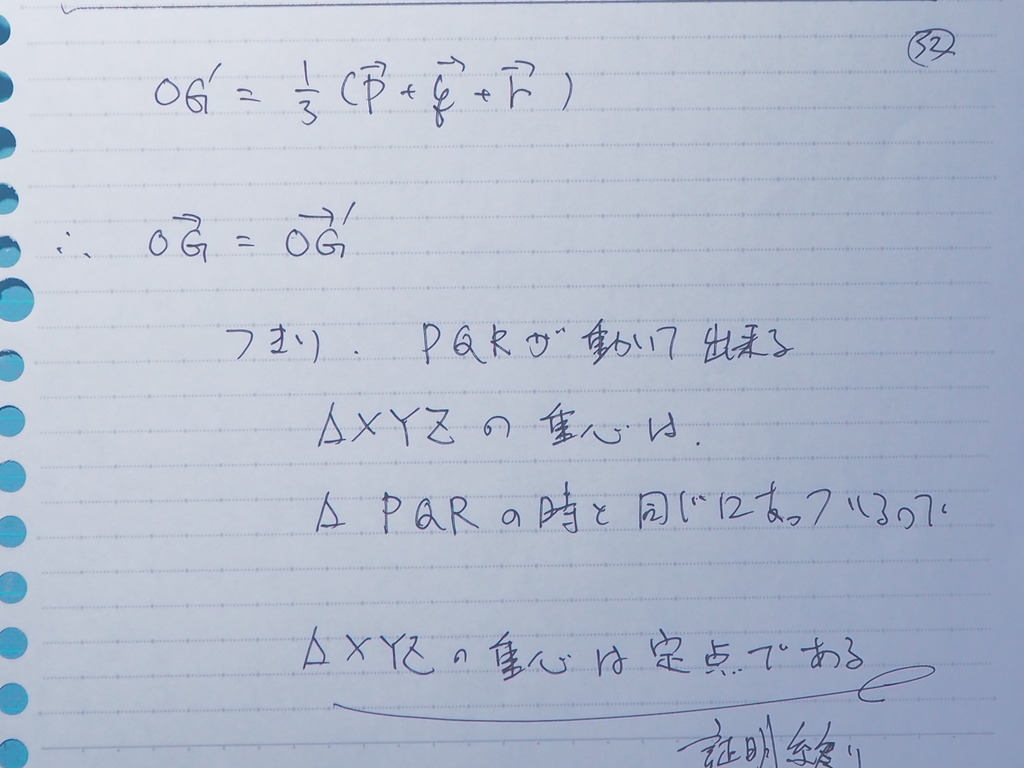 32
OG' = 1/3 (p⃗ + q⃗ + r⃗)
∴ OG⃗ = OG⃗'
つまり. PQRが動いて出来る
△XYZの重心は.
△PQRの時と同じになっているので
△XYZの重心は定点である
証明終り